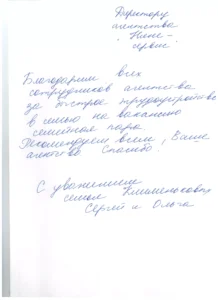 Директору
агентства
"Нине-
сервис"
Благодарим всех
сотрудников агентства
за быстрое трудоустройство
в семью на вакансию
семейная пара.
Рекомендуем всем, Ваше
агентство. Спасибо.
С уважением
семья
Сергей и Ольга